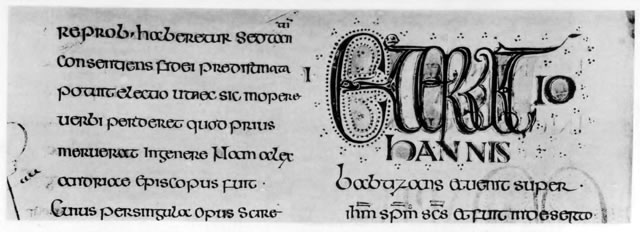 reprob· haberetur sed tan
consentiens fidei predistinata
potuit electio ut nec sic in opere
uerbi perderet quod prius
meruerat in genere Nam alex
andriae episcopus fuit ·
Cuius per singula opus scire
I ET ERAT IO
HANNIS
babtizans et uenit super ·
ihm spm scs et fuit in deserto